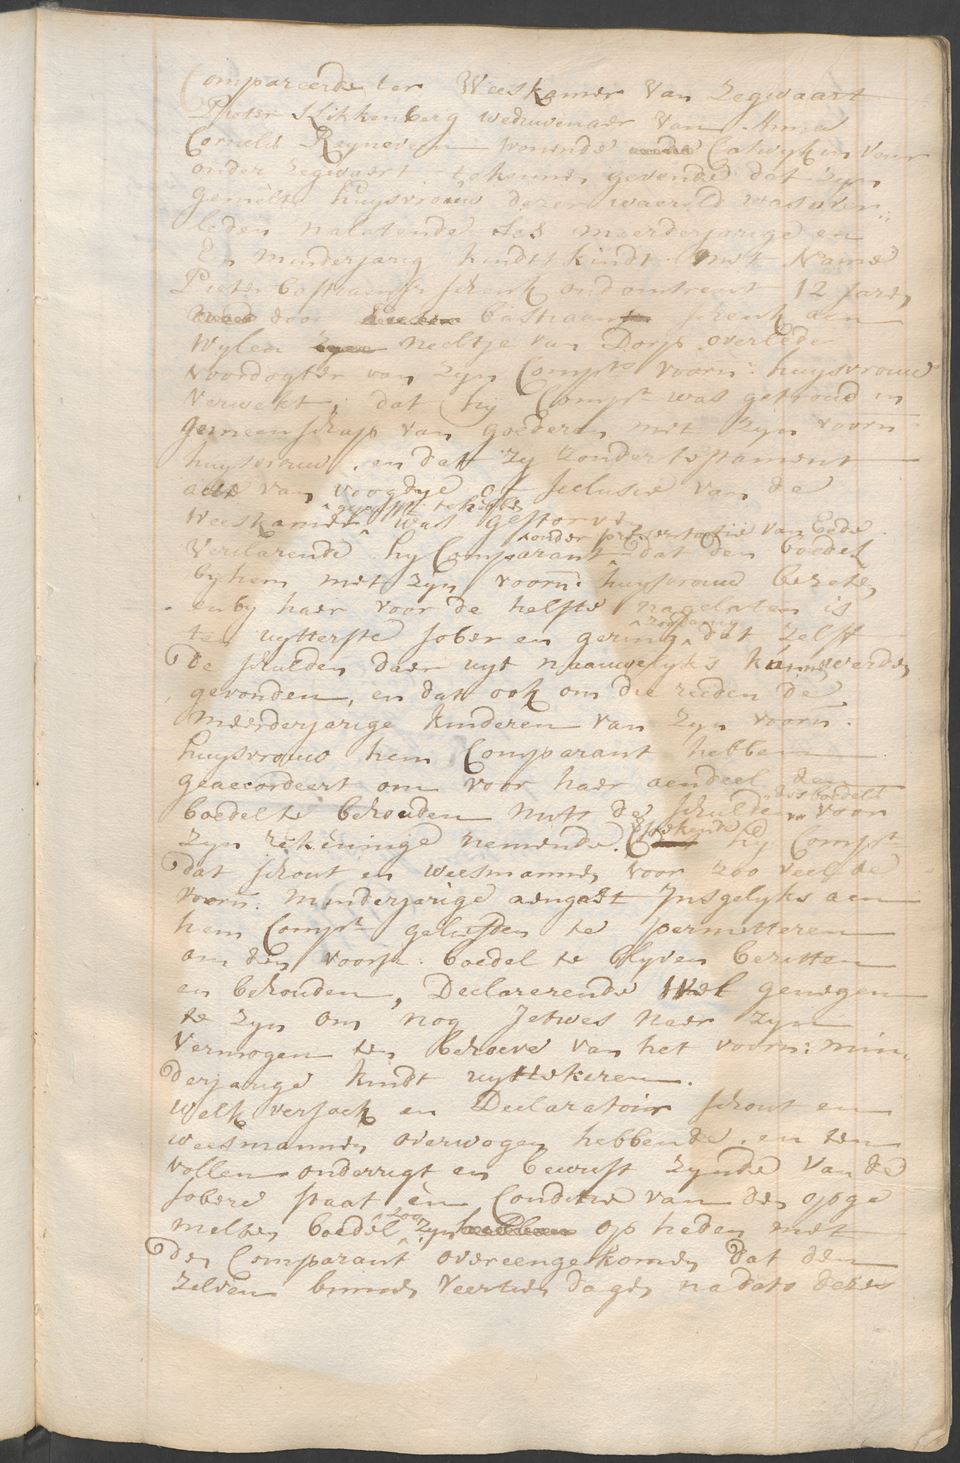 Compareerde ter Weeskamer van Zegwaart
Pieter Klikkenberg weduwenaer van Anna
Cornelis Reyneveen wonende Catwyk in Veur
onder Zegwaert, te kennen gevende dat zyn
gemelte huysvrouw dezer waereld was over-
leden nalatende Ses meerderjarige en
En minderjarig kindts kindt met Name
Pieter bastiaansz Schenk oud omtrent 12 Jaren
door bastiaan Schenk aen
wylen Neeltje van Dorp overlede
voordogter van zyn Compts voorn: huysvrouw
verwekt; dat hy Compt was getroud in
gemeenschap van goederen met zyn voorn
huysvrouw, en dat zy zonder testament
acte van voogdye of seclusie van de
gepasst te hebben
Weeskamer was gestorven
onder presentatie van Eede
Verclarende hy Comparant dat den boedel
by hem met zyn voorn: huysvrouw bezeten
en by haer voor de helfte nagelaten is
zoodanig
ten uytterste sober en gering dat zelfs
de schulden daer uyt naauwelyks kunne werden
gevonden, en dat ook om die reeden de
meerderjarige kinderen van zyn voorn:
huysvrouw hem Comparant hebben
geaccordeert om voor haer aendeel den
des boedels
boedel te behouden mits de schulden voor
zyn rekeninge nemende. hy Compt
dat Schout en weesmannen voor zoo veel de
voorn: minderjarige aengaet Insgelyks aen
hem Compt geliefden te permitteren
om den voorsz: boedel te blyven bezitten
en behouden, Declarerende Wel genegen
te zyn om nog Jetwes naer zyn
vermogen ten behoeve van het voorn: min-
derjarige kindt uyttekeren.
Welk versoek en Declaratoir Schout en
weesmannen overwogen hebbende, en ten
vollen onderrigt en bewust zynde van de
sobere staat en Conditie van den opge
zoo
melten boedel zyn op heden met
den Comparant overeengekomen dat den
zelven binnen veertien dagen na dato dezes